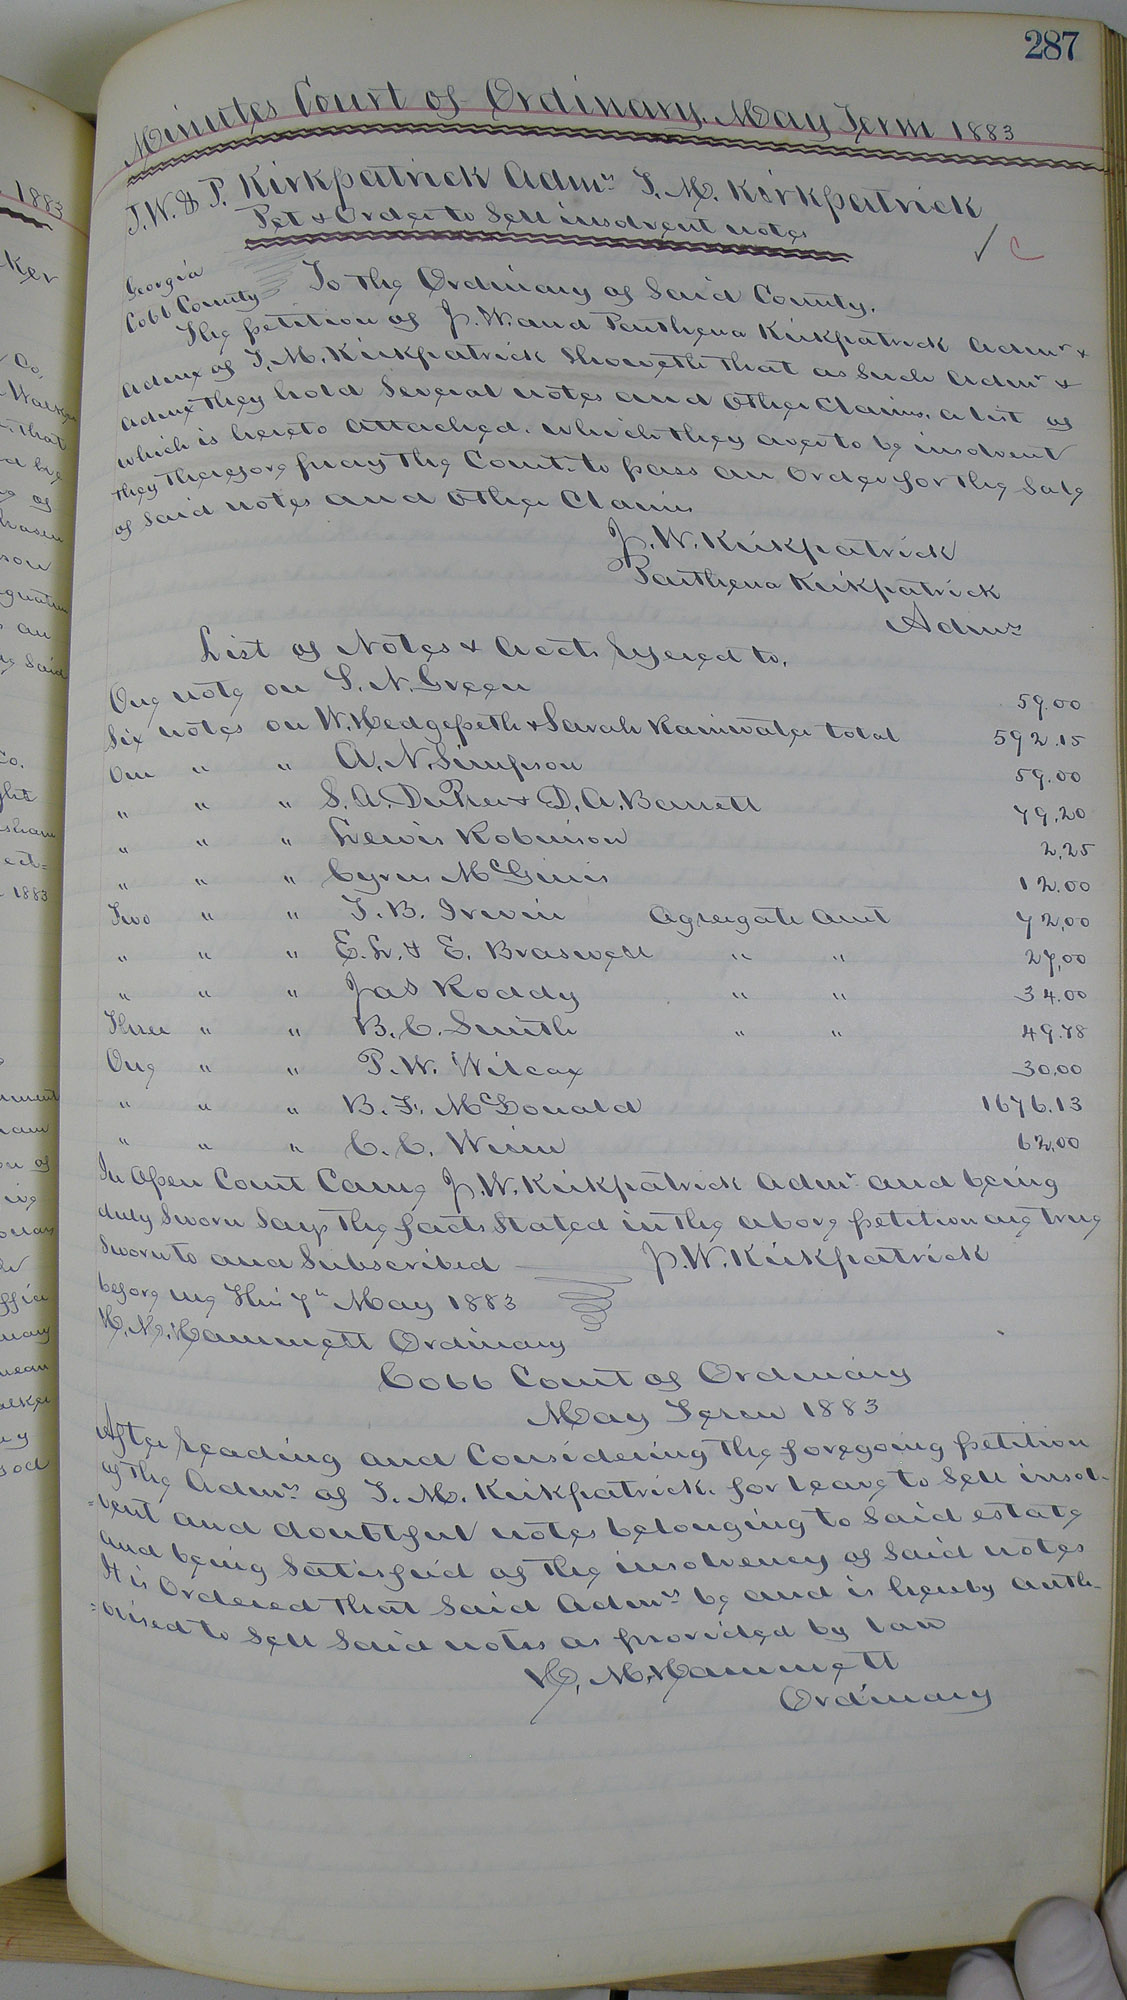 287
Minutes Court of Ordinary. May Term 1883
J. W. & P. Kirkpatrick Admrs T. M. Kirkpatrick
Pet & Order to Sell insolvent notes
✓ C
Georgia
Cobb County To the Ordinary of Said County.
The petition of J. W. and Parthena Kirkpatrick Admr &
Admx of T. M. Kirkpatrick Showeth that as Such Admr &
Admx they hold Several notes and Other Claims, a list of
which is hereto attached. which they aver to be insolvent
they therefore pray the Court. to pass an Order for the Sale
of Said notes and Other Claims
J. W. Kirkpatrick
Parthena Kirkpatrick
Admrs
List of Notes & Accts refered to.
One note on S. N. Green 59.00
Six notes on W. Hedgepeth & Sarah Rainwater total 592.15
One " " A. N. Simpson 59.00
" " " S. A. DuPree & D. A. Barrett 79.20
" " " Lewis Robinson 2.25
" " " Cyrus McGinis 12.00
Two " " T. B. Irwin Agregate amt 72.00
" " " E. L. & E. Braswell " " 27.00
" " " Jas Roddy " " 34.00
Three " " B. C. Smith " " 49.78
One " " P. W. Wilcox 30.00
" " " B. F. McDonald 1676.13
" " " C. C. Winn 62.00
In Open Court Came J. W. Kirkpatrick Admr and being
duly Sworn Says the facts Stated in the above petition are true
Sworn to and Subscribed J. W. Kirkpatrick
before me This 7th May 1883
H. M. Hammett Ordinary
Cobb Court of Ordinary
May Term 1883
After reading and Considering the foregoing petition
of the Admrs of T. M. Kirkpatrick. for leave to Sell insol-
=vent and doubtful notes belonging to Said estate
And being Satisfied of the insolvency of Said notes
It is Ordered that Said Admrs be and is hereby auth-
=orised to Sell Said notes as provided by law
H. M. Hammett
Ordinary